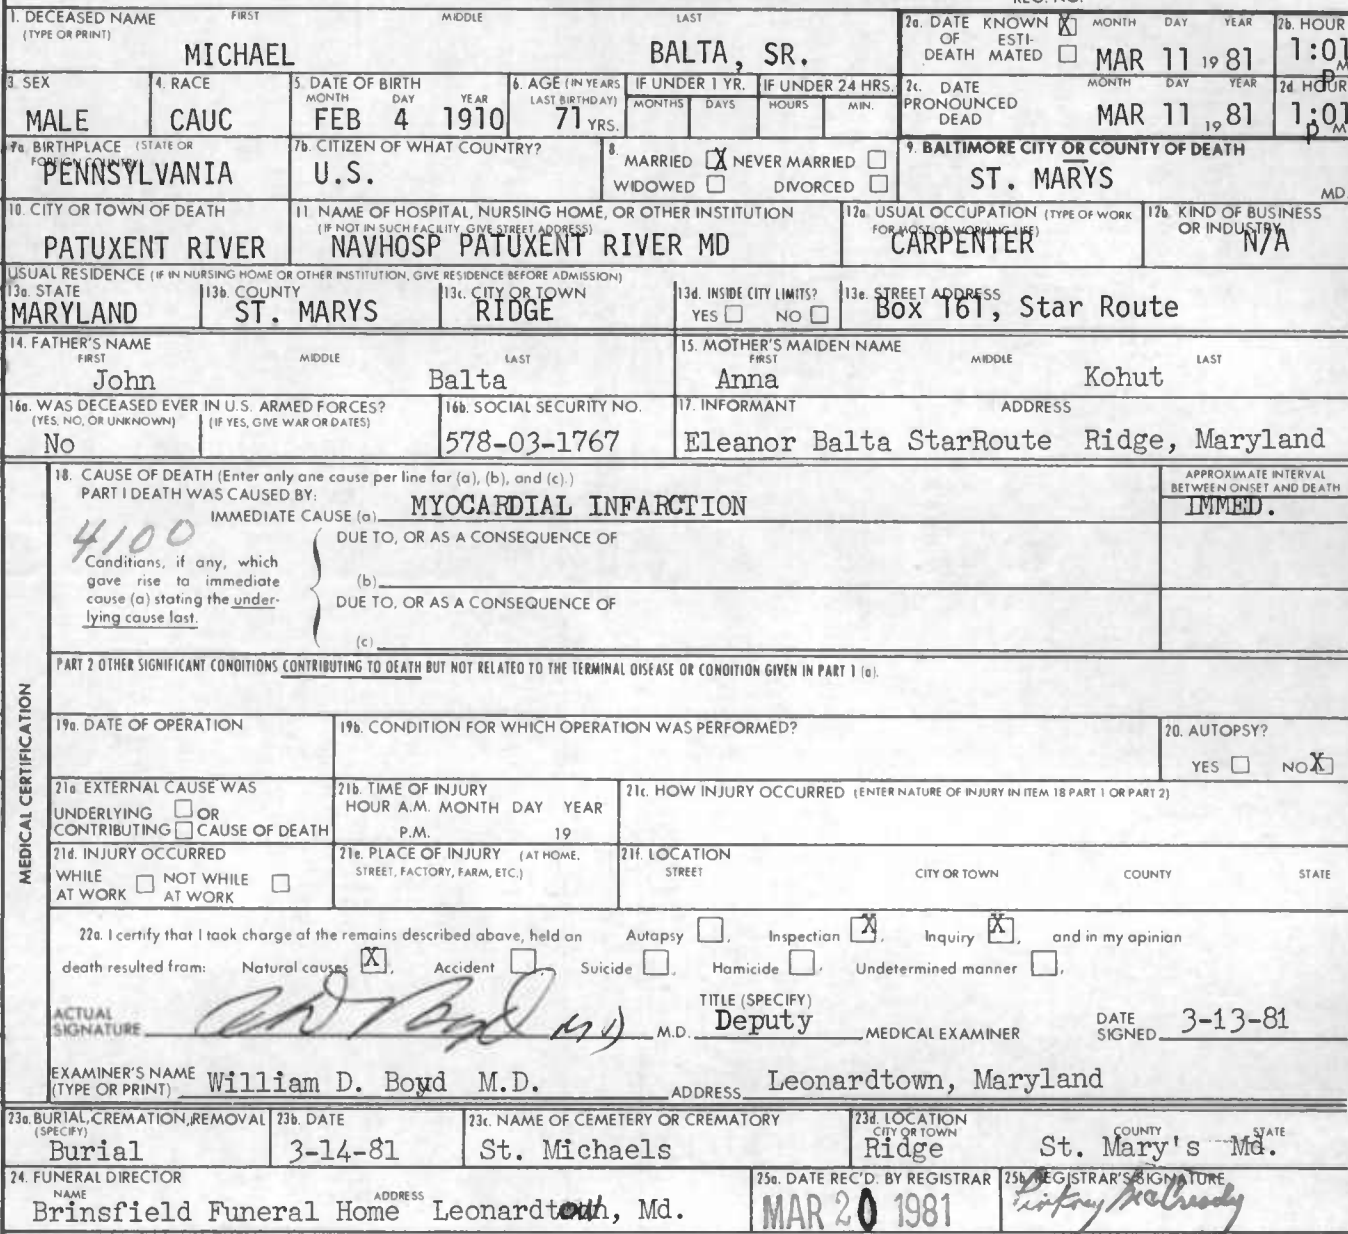 1. DECEASED NAME FIRST MIDDLE LAST
(TYPE OR PRINT)
MICHAEL BALTA, SR.
2a. DATE KNOWN X MONTH DAY YEAR
OF ESTI-
DEATH MATED MAR 11 19 81
2b. HOUR
1:01 P M
3. SEX
MALE
4. RACE
CAUC
5. DATE OF BIRTH
MONTH DAY YEAR
FEB 4 1910
6. AGE (IN YEARS
LAST BIRTHDAY)
71 YRS.
IF UNDER 1 YR.
MONTHS DAYS
IF UNDER 24 HRS.
HOURS MIN.
2c. DATE MONTH DAY YEAR
PRONOUNCED
DEAD MAR 11 19 81
2d. HOUR
1:01 P M
7a. BIRTHPLACE (STATE OR
FOREIGN COUNTRY)
PENNSYLVANIA
7b. CITIZEN OF WHAT COUNTRY?
U.S.
8.
MARRIED X NEVER MARRIED
WIDOWED DIVORCED
9. BALTIMORE CITY OR COUNTY OF DEATH
ST. MARYS
MD.
10. CITY OR TOWN OF DEATH
PATUXENT RIVER
11. NAME OF HOSPITAL, NURSING HOME, OR OTHER INSTITUTION
(IF NOT IN SUCH FACILITY, GIVE STREET ADDRESS)
NAVHOSP PATUXENT RIVER MD
12a. USUAL OCCUPATION (TYPE OF WORK
FOR MOST OF WORKING LIFE)
CARPENTER
12b. KIND OF BUSINESS
OR INDUSTRY
N/A
USUAL RESIDENCE (IF IN NURSING HOME OR OTHER INSTITUTION, GIVE RESIDENCE BEFORE ADMISSION)
13a. STATE
MARYLAND
13b. COUNTY
ST. MARYS
13c. CITY OR TOWN
RIDGE
13d. INSIDE CITY LIMITS?
YES NO
13e. STREET ADDRESS
Box 161, Star Route
14. FATHER'S NAME
FIRST MIDDLE LAST
John Balta
15. MOTHER'S MAIDEN NAME
FIRST MIDDLE LAST
Anna Kohut
16a. WAS DECEASED EVER IN U.S. ARMED FORCES?
(YES, NO, OR UNKNOWN) (IF YES, GIVE WAR OR DATES)
No
16b. SOCIAL SECURITY NO.
578-03-1767
17. INFORMANT ADDRESS
Eleanor Balta StarRoute Ridge, Maryland
MEDICAL CERTIFICATION
18. CAUSE OF DEATH (Enter only one cause per line for (a), (b), and (c).)
PART I DEATH WAS CAUSED BY:
IMMEDIATE CAUSE (a) MYOCARDIAL INFARCTION
APPROXIMATE INTERVAL
BETWEEN ONSET AND DEATH
IMMED.
4100
Conditions, if any, which
gave rise to immediate
cause (a) stating the under-
lying cause last.
DUE TO, OR AS A CONSEQUENCE OF
(b)
DUE TO, OR AS A CONSEQUENCE OF
(c)
PART 2 OTHER SIGNIFICANT CONDITIONS CONTRIBUTING TO DEATH BUT NOT RELATED TO THE TERMINAL DISEASE OR CONDITION GIVEN IN PART 1 (a).
19a. DATE OF OPERATION
19b. CONDITION FOR WHICH OPERATION WAS PERFORMED?
20. AUTOPSY?
YES NO X
21a EXTERNAL CAUSE WAS
UNDERLYING OR
CONTRIBUTING CAUSE OF DEATH
21b. TIME OF INJURY
HOUR A.M. MONTH DAY YEAR
P.M. 19
21c. HOW INJURY OCCURRED (ENTER NATURE OF INJURY IN ITEM 18 PART 1 OR PART 2)
21d. INJURY OCCURRED
WHILE NOT WHILE
AT WORK AT WORK
21e. PLACE OF INJURY (AT HOME,
STREET, FACTORY, FARM, ETC.)
21f. LOCATION
STREET CITY OR TOWN COUNTY STATE
22a. I certify that I took charge of the remains described above, held an Autopsy , Inspection X , Inquiry X , and in my opinion
death resulted from: Natural causes X , Accident , Suicide , Homicide , Undetermined manner ,
ACTUAL
SIGNATURE MD M.D.
TITLE (SPECIFY)
Deputy MEDICAL EXAMINER
DATE
SIGNED 3-13-81
EXAMINER'S NAME
(TYPE OR PRINT) William D. Boyd M.D. ADDRESS Leonardtown, Maryland
23a. BURIAL, CREMATION, REMOVAL
(SPECIFY)
Burial
23b. DATE
3-14-81
23c. NAME OF CEMETERY OR CREMATORY
St. Michaels
23d. LOCATION
CITY OR TOWN COUNTY STATE
Ridge St. Mary's Md.
24. FUNERAL DIRECTOR
NAME ADDRESS
Brinsfield Funeral Home Leonardtown, Md.
25a. DATE REC'D. BY REGISTRAR
MAR 20 1981
25b. REGISTRAR'S SIGNATURE